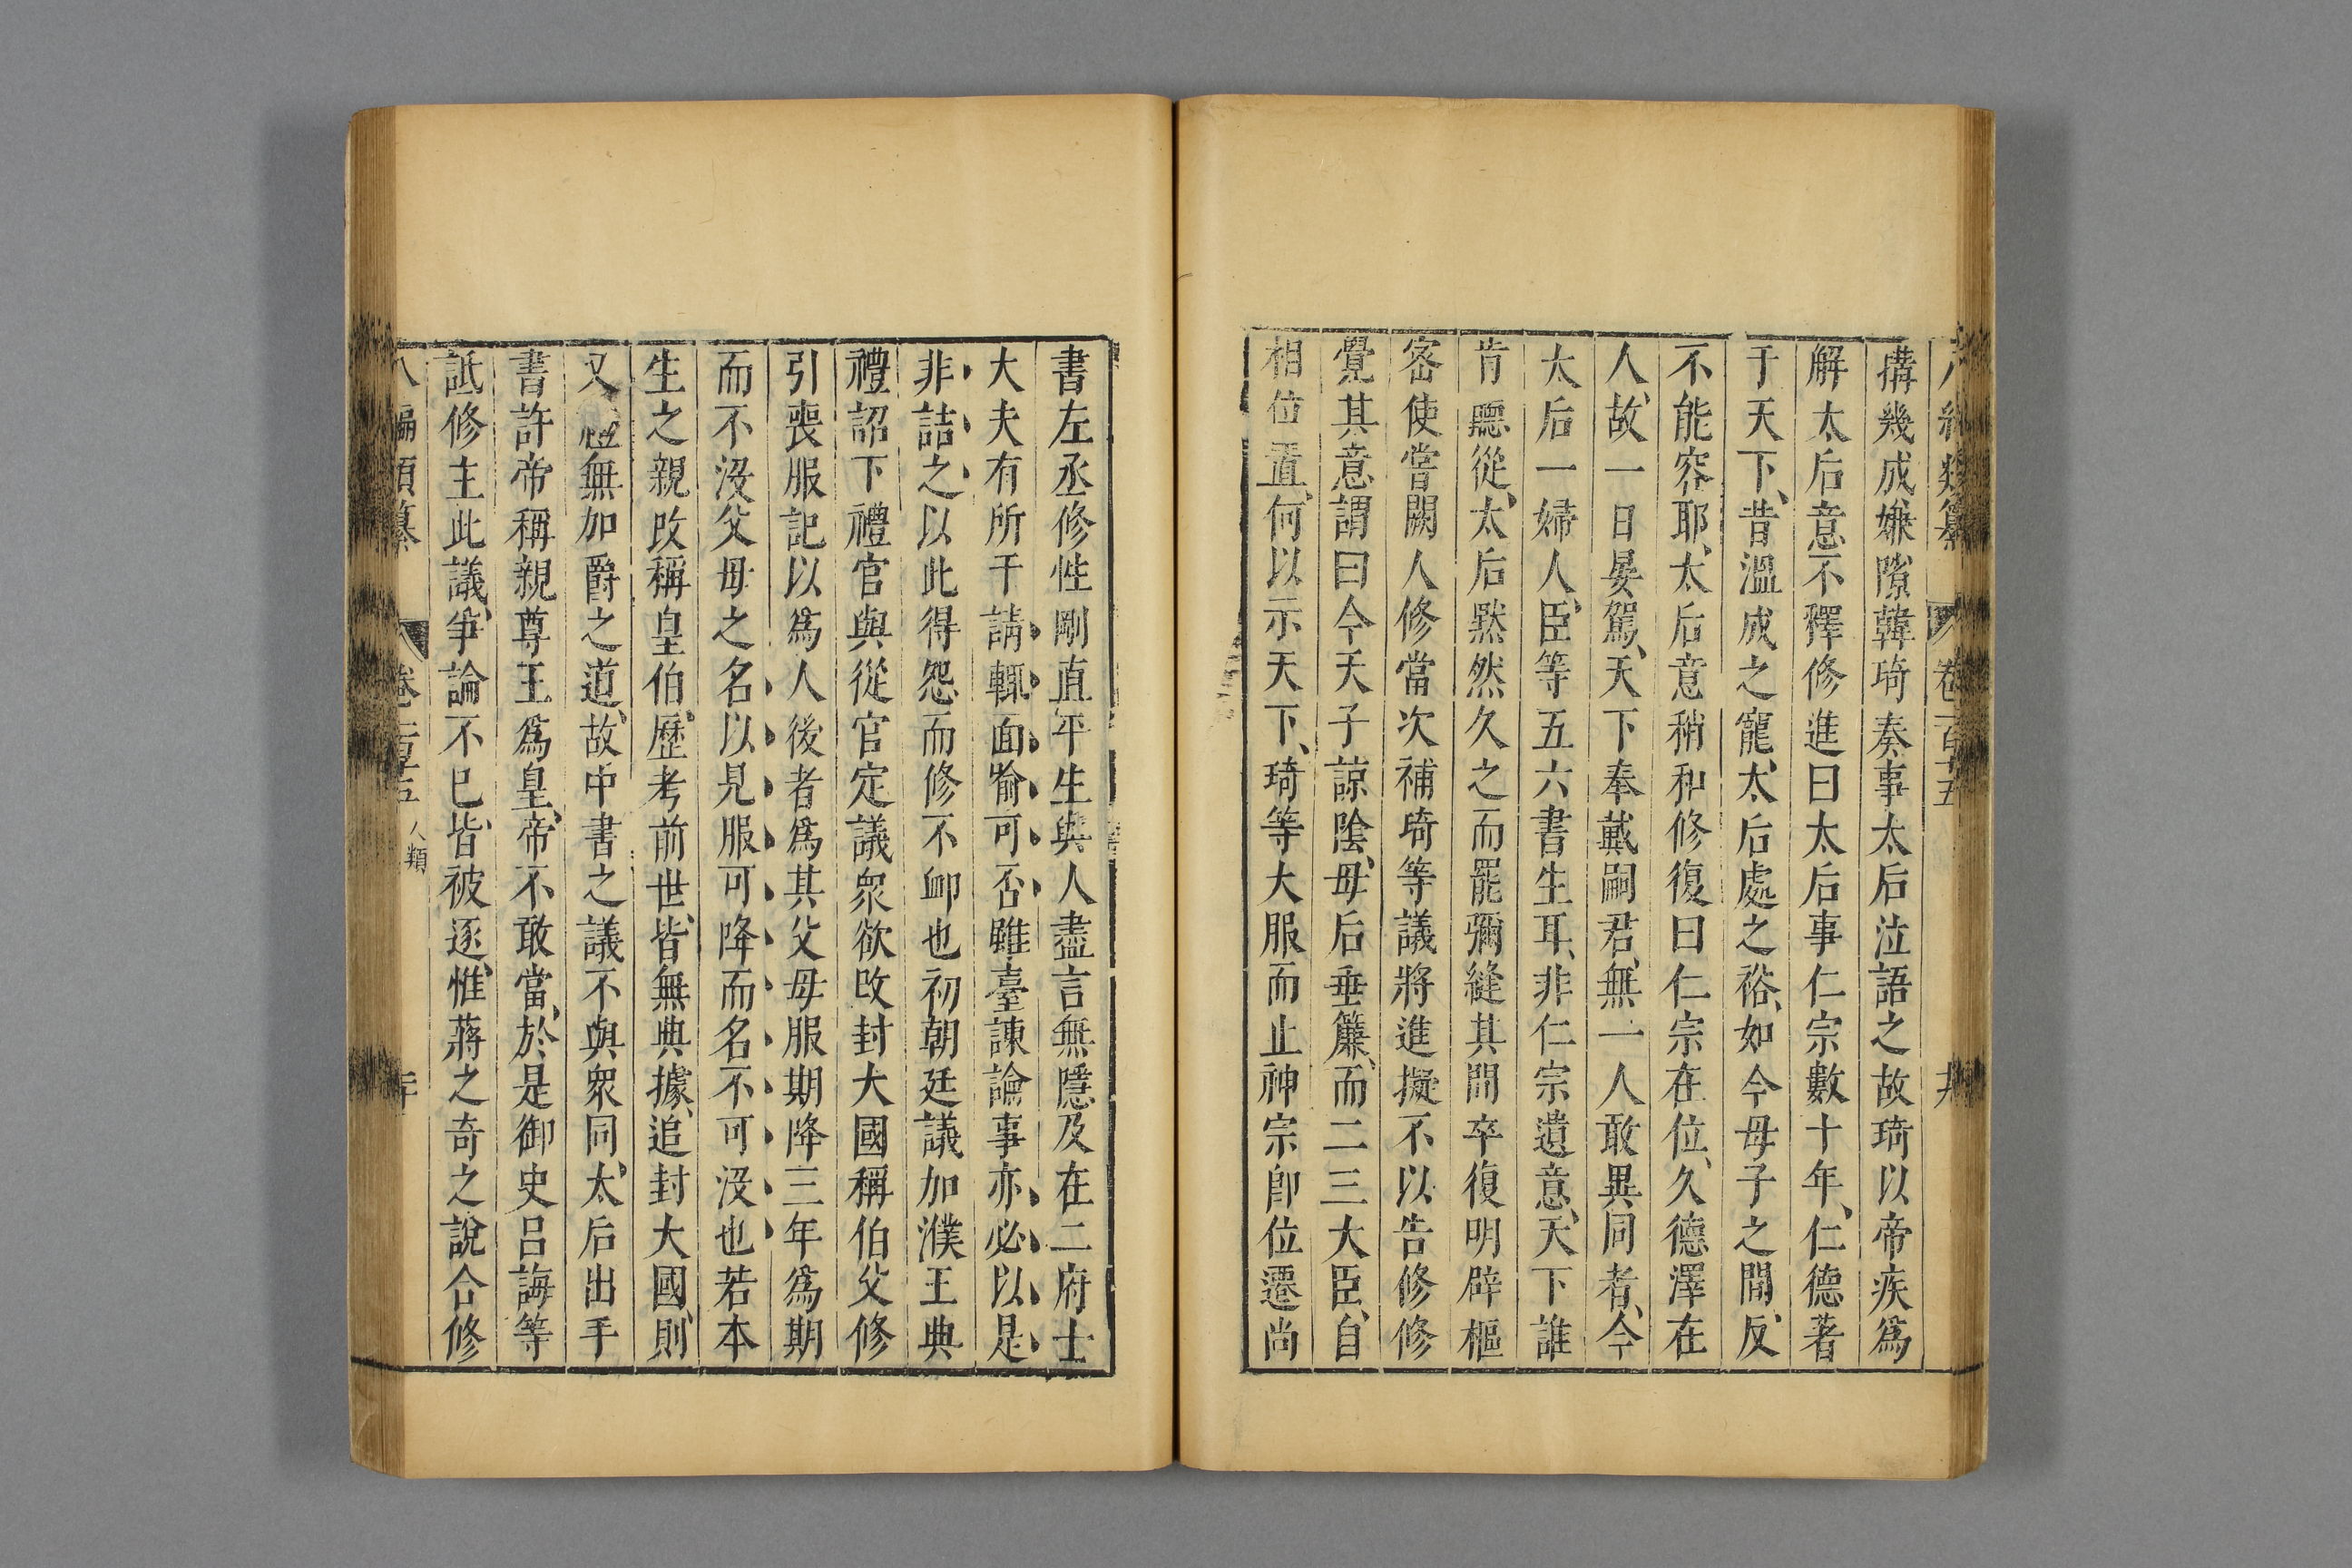 八編類纂 卷二百十五
搆幾成嫌隙韓琦奏事太后泣語之故琦以帝疾爲
解太后意不釋修進曰太后事仁宗數十年仁德著
于天下昔溫成之寵太后處之裕如今母子之間反
不能容耶太后意稍和修復曰仁宗在位久德澤在
人故一日晏駕天下奉戴嗣君無一人敢異同者今
太后一婦人臣等五六書生耳非仁宗遺意天下誰
肯聽從太后默然久之而罷彌縫其間卒復明辟樞
密使嘗闕人修當次補琦等議將進擬不以告修修
覺其意謂曰今天子諒陰母后垂簾而二三大臣自
相位置何以示天下琦等大服而止神宗卽位遷尚
書左丞修性剛直平生與人盡言無隱及在二府士
大夫有所干請輒面喻可否雖臺諫論事亦必以是
非詰之以此得怨而修不卹也初朝廷議加濮王典
禮詔下禮官與從官定議衆欲改封大國稱伯父修
引喪服記以爲人後者爲其父母服期降三年爲期
而不沒父母之名以見服可降而名不可沒也若本
生之親改稱皇伯歷考前世皆無典據追封大國則
又禮無加爵之道故中書之議不與衆同太后出手
書許帝稱親尊王爲皇帝不敢當於是御史呂誨等
詆修主此議爭論不已皆被逐惟蔣之奇之說合修
八編類纂 卷二百十五 人類 二十